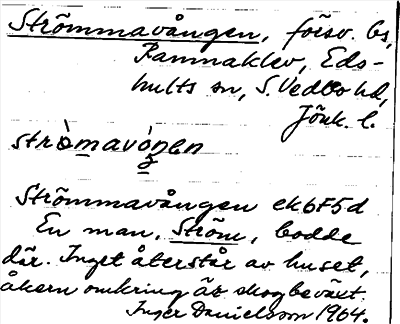 Strömmavången, försv. bs,
Ramnaklev, Eds-
hults sn, S. Vedbo hd,
Jönk. l.
stròmavóŋen
Strömmavången ek 6F5d
En man, Ström, bodde
där. Inget återstår av huset,
åkern omkring är skogbeväxt.
Inger Danielsson 1964.